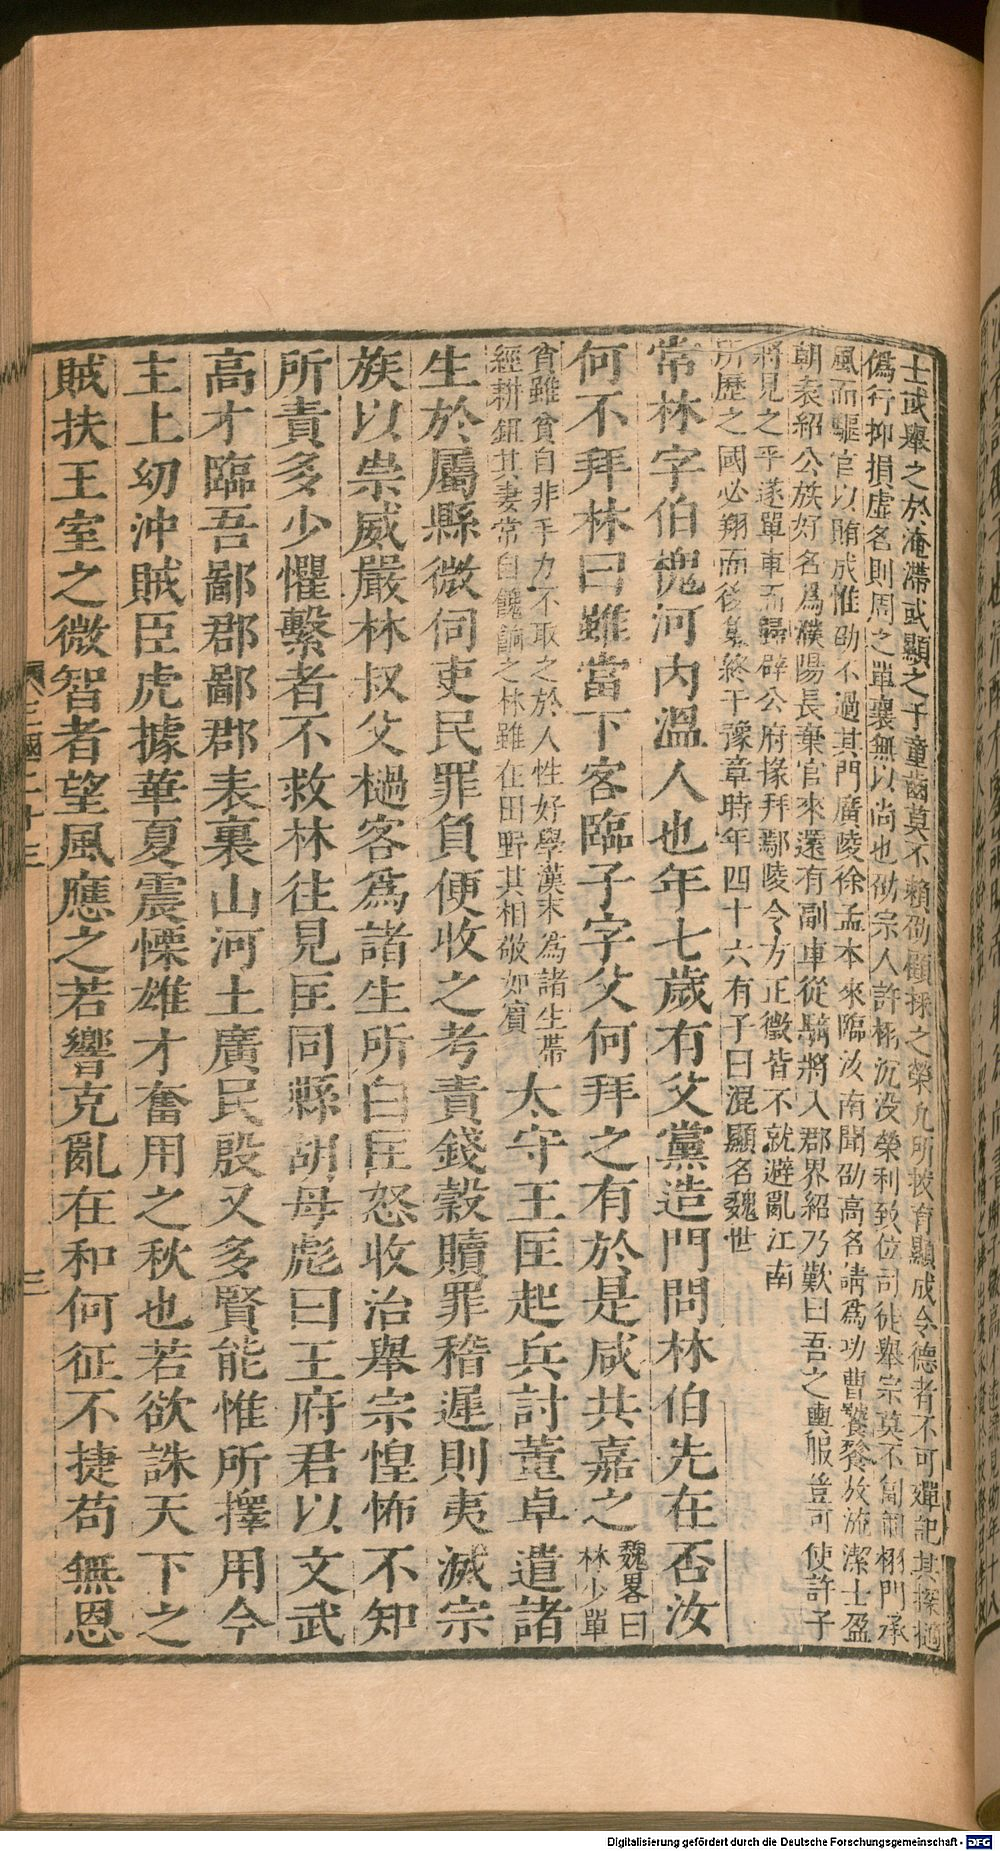 士或舉之於淹滯或顯之于童齒莫不賴劭顧採之榮凡所拔育顯成令德者不可殫記其探擿
僞行抑損虛名則周之單襄無以尚也劭宗人許栩沉没榮利致位司徒舉宗莫不匍匐栩門承
風而驅官以賄成惟劭不過其門廣陵徐孟本來臨汝南聞劭高名請爲功曹饕餮放流潔士盈
朝袁紹公族好名爲濮陽長棄官來還有副車從騎將入郡界紹乃歎曰吾之輿服豈可使許子
將見之乎遂單車而歸辟公府掾拜鄢陵令方正徵皆不就避亂江南
所歷之國必翔而後集終于豫章時年四十六有子曰混顯名魏世
常林字伯槐河内溫人也年七歲有父黨造門問林伯先在否汝
何不拜林曰雖當下客臨子字父何拜之有於是咸共嘉之魏畧曰
林少單
貧雖貧自非手力不取之於人性好學漢末為諸生帶
經耕鉏其妻常自餽餉之林雖在田野其相敬如賓
太守王匡起兵討董卓遣諸
生於屬縣微伺吏民罪負便收之考責錢穀贖罪稽遲則夷滅宗
族以崇威嚴林叔父檛客爲諸生所白匡怒收治舉宗惶怖不知
所責多少懼繫者不救林往見匡同縣胡母彪曰王府君以文武
高才臨吾鄙郡鄙郡表裏山河土廣民殷又多賢能惟所擇用今
主上幼沖賊臣虎據華夏震慄雄才奮用之秋也若欲誅天下之
賊扶王室之微智者望風應之若響克亂在和何征不捷苟無恩
三國二十三
三
Digitalisierung gefördert durch die Deutsche Forschungsgemeinschaft - DFG